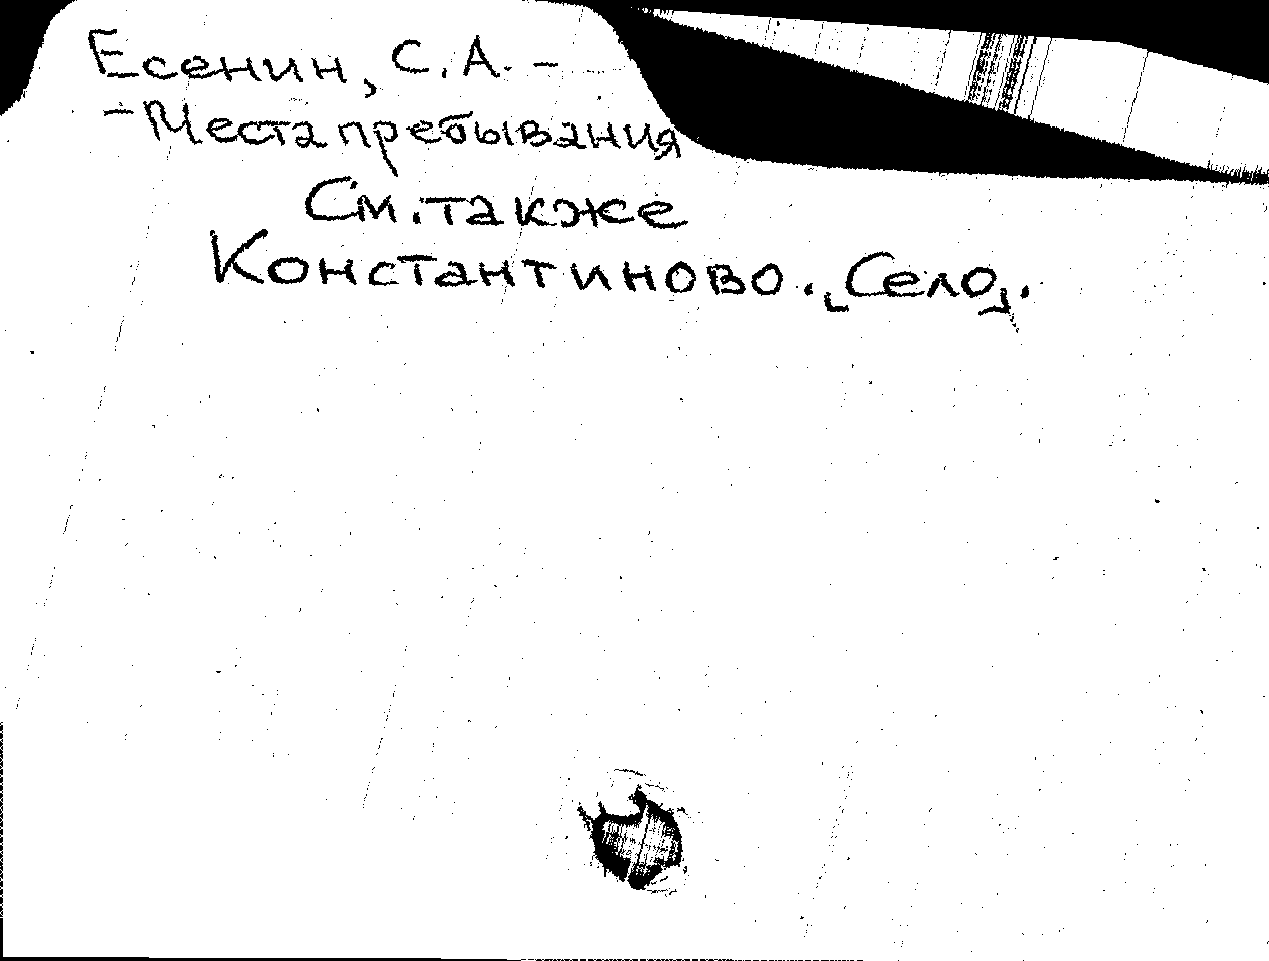 Есенин, С.А. –
– Места пребывания
См. также
Константиново. [Село].